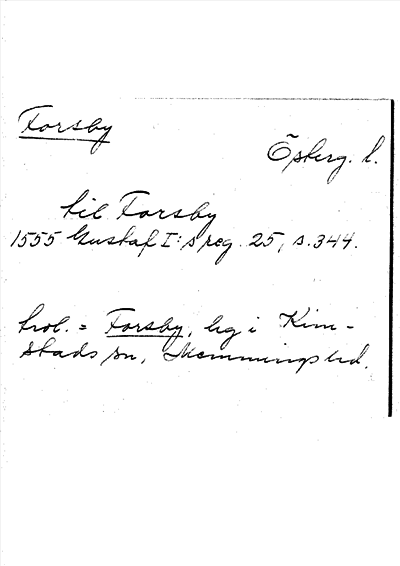 Forsby
Östberg. l.
til Forsby
1555 Gustaf I:s reg. 25, s. 344.
trol. = Forsby, bg i Kim-
stads sn, Memmings hd.